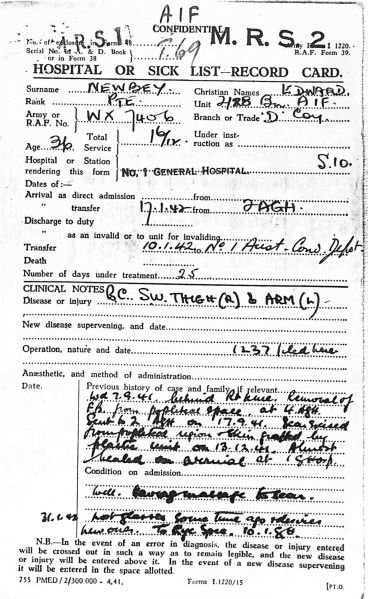 AIF
CONFIDENTIAL
M.R.S.1
M.R.S 2
No. of enclosure in Form 48
Serial No. in A. & D. Book
or in Form 38
T.69
Army Forms I 1220.
R.A.F. Form 39.
HOSPITAL OR SICK LIST—RECORD CARD.
Surname NEWBEY Christian Names EDWARD.
Rank PTE. Unit 2/28 Bn AIF.
Army or
R.A.F. No. WX 7406 Branch or Trade 'D' Coy
Age Total
Service 1 9/12 Under inst-
ruction as
Hospital or Station
rendering this form No. 1 GENERAL HOSPITAL. S.10.
Dates of:—
Arrival as direct admission from
" transfer 17.1.42 from 2AGH.
Discharge to duty
" as an invalid or to unit for invaliding
Transfer 10.1.42 No 1 Aust. Conv. Depot
Death
Number of days under treatment 25
CLINICAL NOTES
Disease or injury BC. SW. THIGH (R) & ARM (L)
New disease supervening, and date
Operation, nature and date 1237 filed here
Anæsthetic, and method of administration
Date. Previous history of case and family if relevant.
Wd 7.9.41 behind Rt knee Removal of
F.B. from popliteal space at 4 AGH
Sent to 2 AGH on 17.9.41 Scar excised
from popliteal region then grafted by
plastic unit on 13.12.41. Almost
healed on arrival at
Condition on admission
Well. massage to scar.
31.1.42 Got glasses some time ago
new ones. To Eye Spec. 10.1.
N.B.—In the event of an error in diagnosis, the disease or injury entered
will be crossed out in such a way as to remain legible, and the new disease
will be entered above it. In the event of a new disease supervening
it will be entered in the space allotted.
755 PMED/2/300 000 - 4,41. Forms I.1220/15
[PT.O.